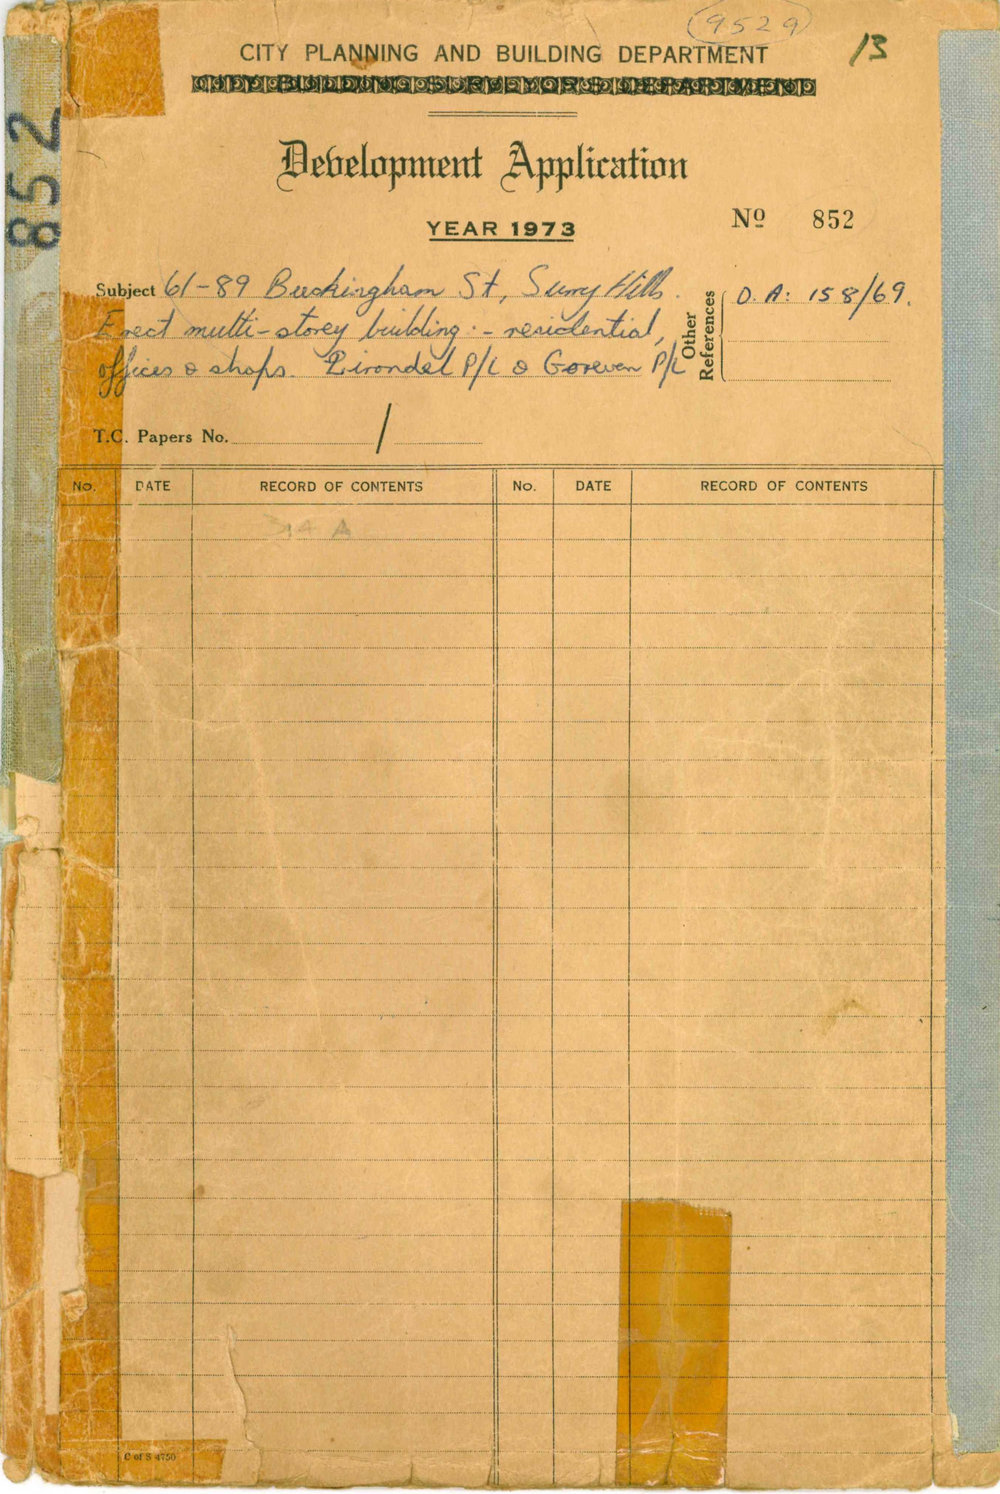 9529
13
CITY PLANNING AND BUILDING DEPARTMENT
CITY BUILDING SURVEYOR'S DEPARTMENT
Development Application
YEAR 1973
Nº 852
852
Subject 61-89 Buckingham St, Surry Hills.
Erect multi-storey building:- residential,
offices & shops. Lirondel P/L & Goreven P/L
Other References
D.A: 158/69.
T.C. Papers No. /
No. DATE RECORD OF CONTENTS No. DATE RECORD OF CONTENTS
C of S 4750